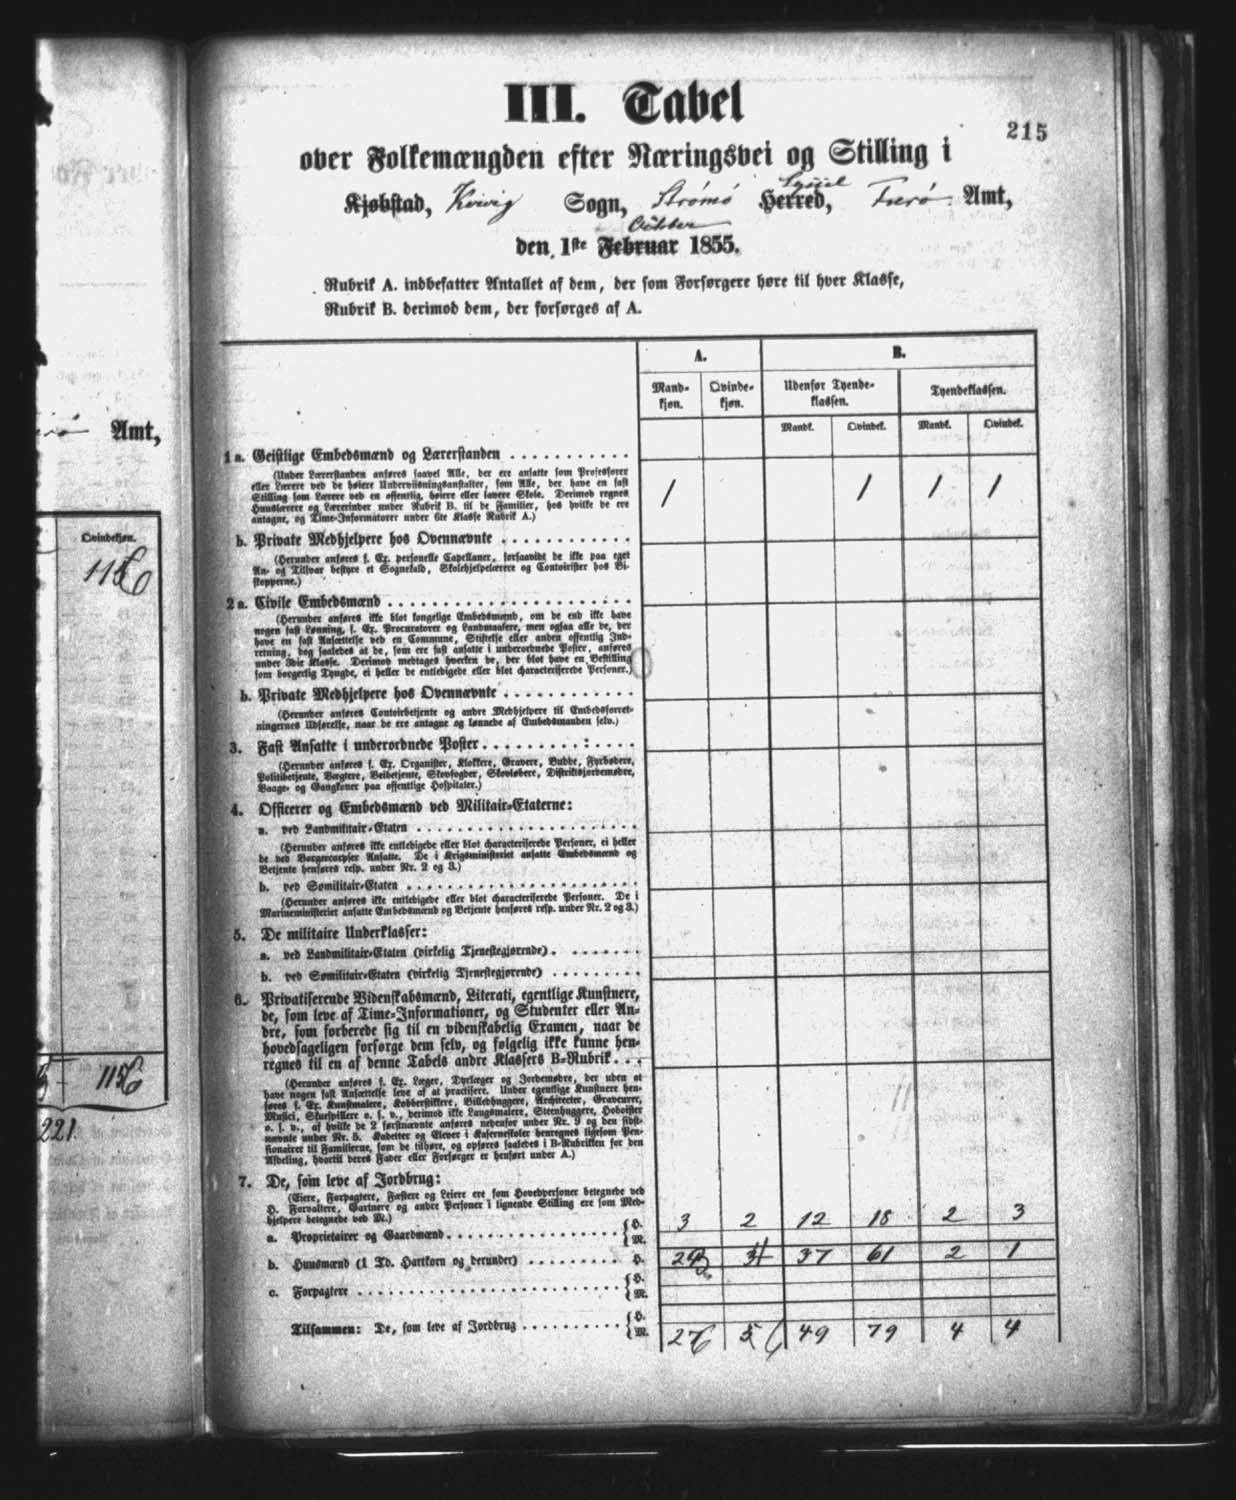 215
III. Tabel
over Folkemængden efter Næringsvei og Stilling i
Kjøbstad, Kvivig Sogn, Strømø Herred, Syssel Færø Amt,
den 1ste Februar Octbr 1855.
Rubrik A. indbefatter Antallet af dem, der som Forsørgere høre til hver Klasse,
Rubrik B. derimod dem, der forsørges af A.
A. B.
Mand-
kjøn. Qvinde-
kjøn. Udenfor Tyende-
klassen. Tyendeklassen.
Mandk. Qvindek. Mandk. Qvindek.
1 a. Geistlige Embedsmænd og Lærerstanden . . . . . . . . . . .
(Under Lærerstanden anføres saavel Alle, der ere ansatte som Professorer
eller Lærere ved de høiere Underviisningsanstalter, som Alle, der have en fast
Stilling som Lærere ved en offentlig, høiere eller lavere Skole. Derimod regnes
Huuslærere og Lærerinder under Rubrik B. til de Familier, hos hvilke de ere
antagne, og Time-Informatorer under 6te Klasse Rubrik A.)
1 1 1 1
b. Private Medhjelpere hos Ovennævnte . . . . . . . . . . . .
(Herunder anføres f. Ex. personelle Capellaner, forsaavidt de ikke paa eget
An- og Tilsvar bestyre et Sognekald, Skolehjelpelærere og Contoirister hos Bi-
skopperne.)
2 a. Civile Embedsmænd . . . . . . . . . . . . . . . . . . . .
(Herunder anføres ikke blot kongelige Embedsmænd, om de end ikke have
nogen fast Lønning, f. Ex. Procuratorer og Landmaalere, men ogsaa alle de, der
have en fast Ansættelse ved en Commune, Stiftelse eller anden offentlig Ind-
retning, dog saaledes at de, som ere fast ansatte i underordnede Poster, anføres
under 3die Klasse. Derimod medtages hverken de, der blot have en Bestilling
som borgerlig Tyngde, ei heller de entledigede eller blot characteriserede Personer.)
b. Private Medhjelpere hos Ovennævnte . . . . . . . . . . . .
(Herunder anføres Contoirbetjente og andre Medhjelpere til Embedsforret-
ningernes Udførelse, naar de ere antagne og lønnede af Embedsmanden selv.)
3. Fast Ansatte i underordnede Poster . . . . . . . . . . . . . .
(Herunder anføres f. Ex. Organister, Klokkere, Gravere, Budde, Fyrbødere,
Politibetjente, Vægtere, Veibetjente, Skovfogder, Skovløbere, Distriktsjordemødre,
Vaage- og Gangkoner paa offentlige Hospitaler.)
4. Officerer og Embedsmænd ved Militair-Etaterne:
a. ved Landmilitair-Etaten . . . . . . . . . . . . . . . . . . . .
(Herunder anføres ikke entledigede eller blot characteriserede Personer, ei heller
de ved Borgercorpser Ansatte. De i Krigsministeriet ansatte Embedsmænd og
Betjente henføres resp. under Nr. 2 og 3.)
b. ved Sømilitair-Etaten . . . . . . . . . . . . . . . . . . . . .
(Herunder anføres ikke entledigede eller blot characteriserede Personer. De i
Marineministeriet ansatte Embedsmænd og Betjente henføres resp. under Nr. 2 og 3.)
5. De militaire Underklasser:
a. ved Landmilitair-Etaten (virkelig Tjenestegjørende) . . . . . . . .
b. ved Sømilitair-Etaten (virkelig Tjenestegjørende) . . . . . . . . .
6. Privatiserende Videnskabsmænd, Literati, egentlige Kunstnere,
de, som leve af Time-Informationer, og Studenter eller An-
dre, som forberede sig til en videnskabelig Examen, naar de
hovedsageligen forsørge dem selv, og følgelig ikke kunne hen-
regnes til en af denne Tabels andre Klassers B-Rubrik . . .
(Herunder anføres f. Ex. Læger, Dyrlæger og Jordemødre, der uden at
have nogen fast Ansættelse leve af at practisere. Under egentlige Kunstnere hen-
føres f. Ex. Kunstmalere, Kobberstikkere, Billedhuggere, Architecter, Graveurer,
Musici, Skuespillere o. s. v., derimod ikke Laugsmalere, Steenhuggere, Hoboister
o. s. v., af hvilke de 2 førstnævnte anføres nedenfor under Nr. 9 og den sidst-
nævnte under Nr. 5. Kadetter og Elever i Kaserneskoler henregnes ligesom Pen-
sionairer til Familierne, som de tilhøre, og opføres saaledes i B-Rubrikken for den
Afdeling, hvortil deres Fader eller Forsørger er henført under A.)
7. De, som leve af Jordbrug:
(Eiere, Forpagtere, Fæstere og Leiere ere som Hovedpersoner betegnede ved
H. Forvaltere, Gartnere og andre Personer i lignende Stilling ere som Med-
hjelpere betegnede ved M.)
a. Proprietairer og Gaardmænd . . . . . . . . . . . . . . . . . H. 3 2 12 18 2 3
M.
b. Huusmænd (1 Td. Hartkorn og derunder) . . . . . . . . . . H. 37 61 2 1
c. Forpagtere . . . . . . . . . . . . . . . . . . . . . . . . . . H.
M.
Tilsammen: De, som leve af Jordbrug . . . . . . . . . . . H.
M. 49 79 4 4
Amt,
Qvindekjøn.
1156
1156
221